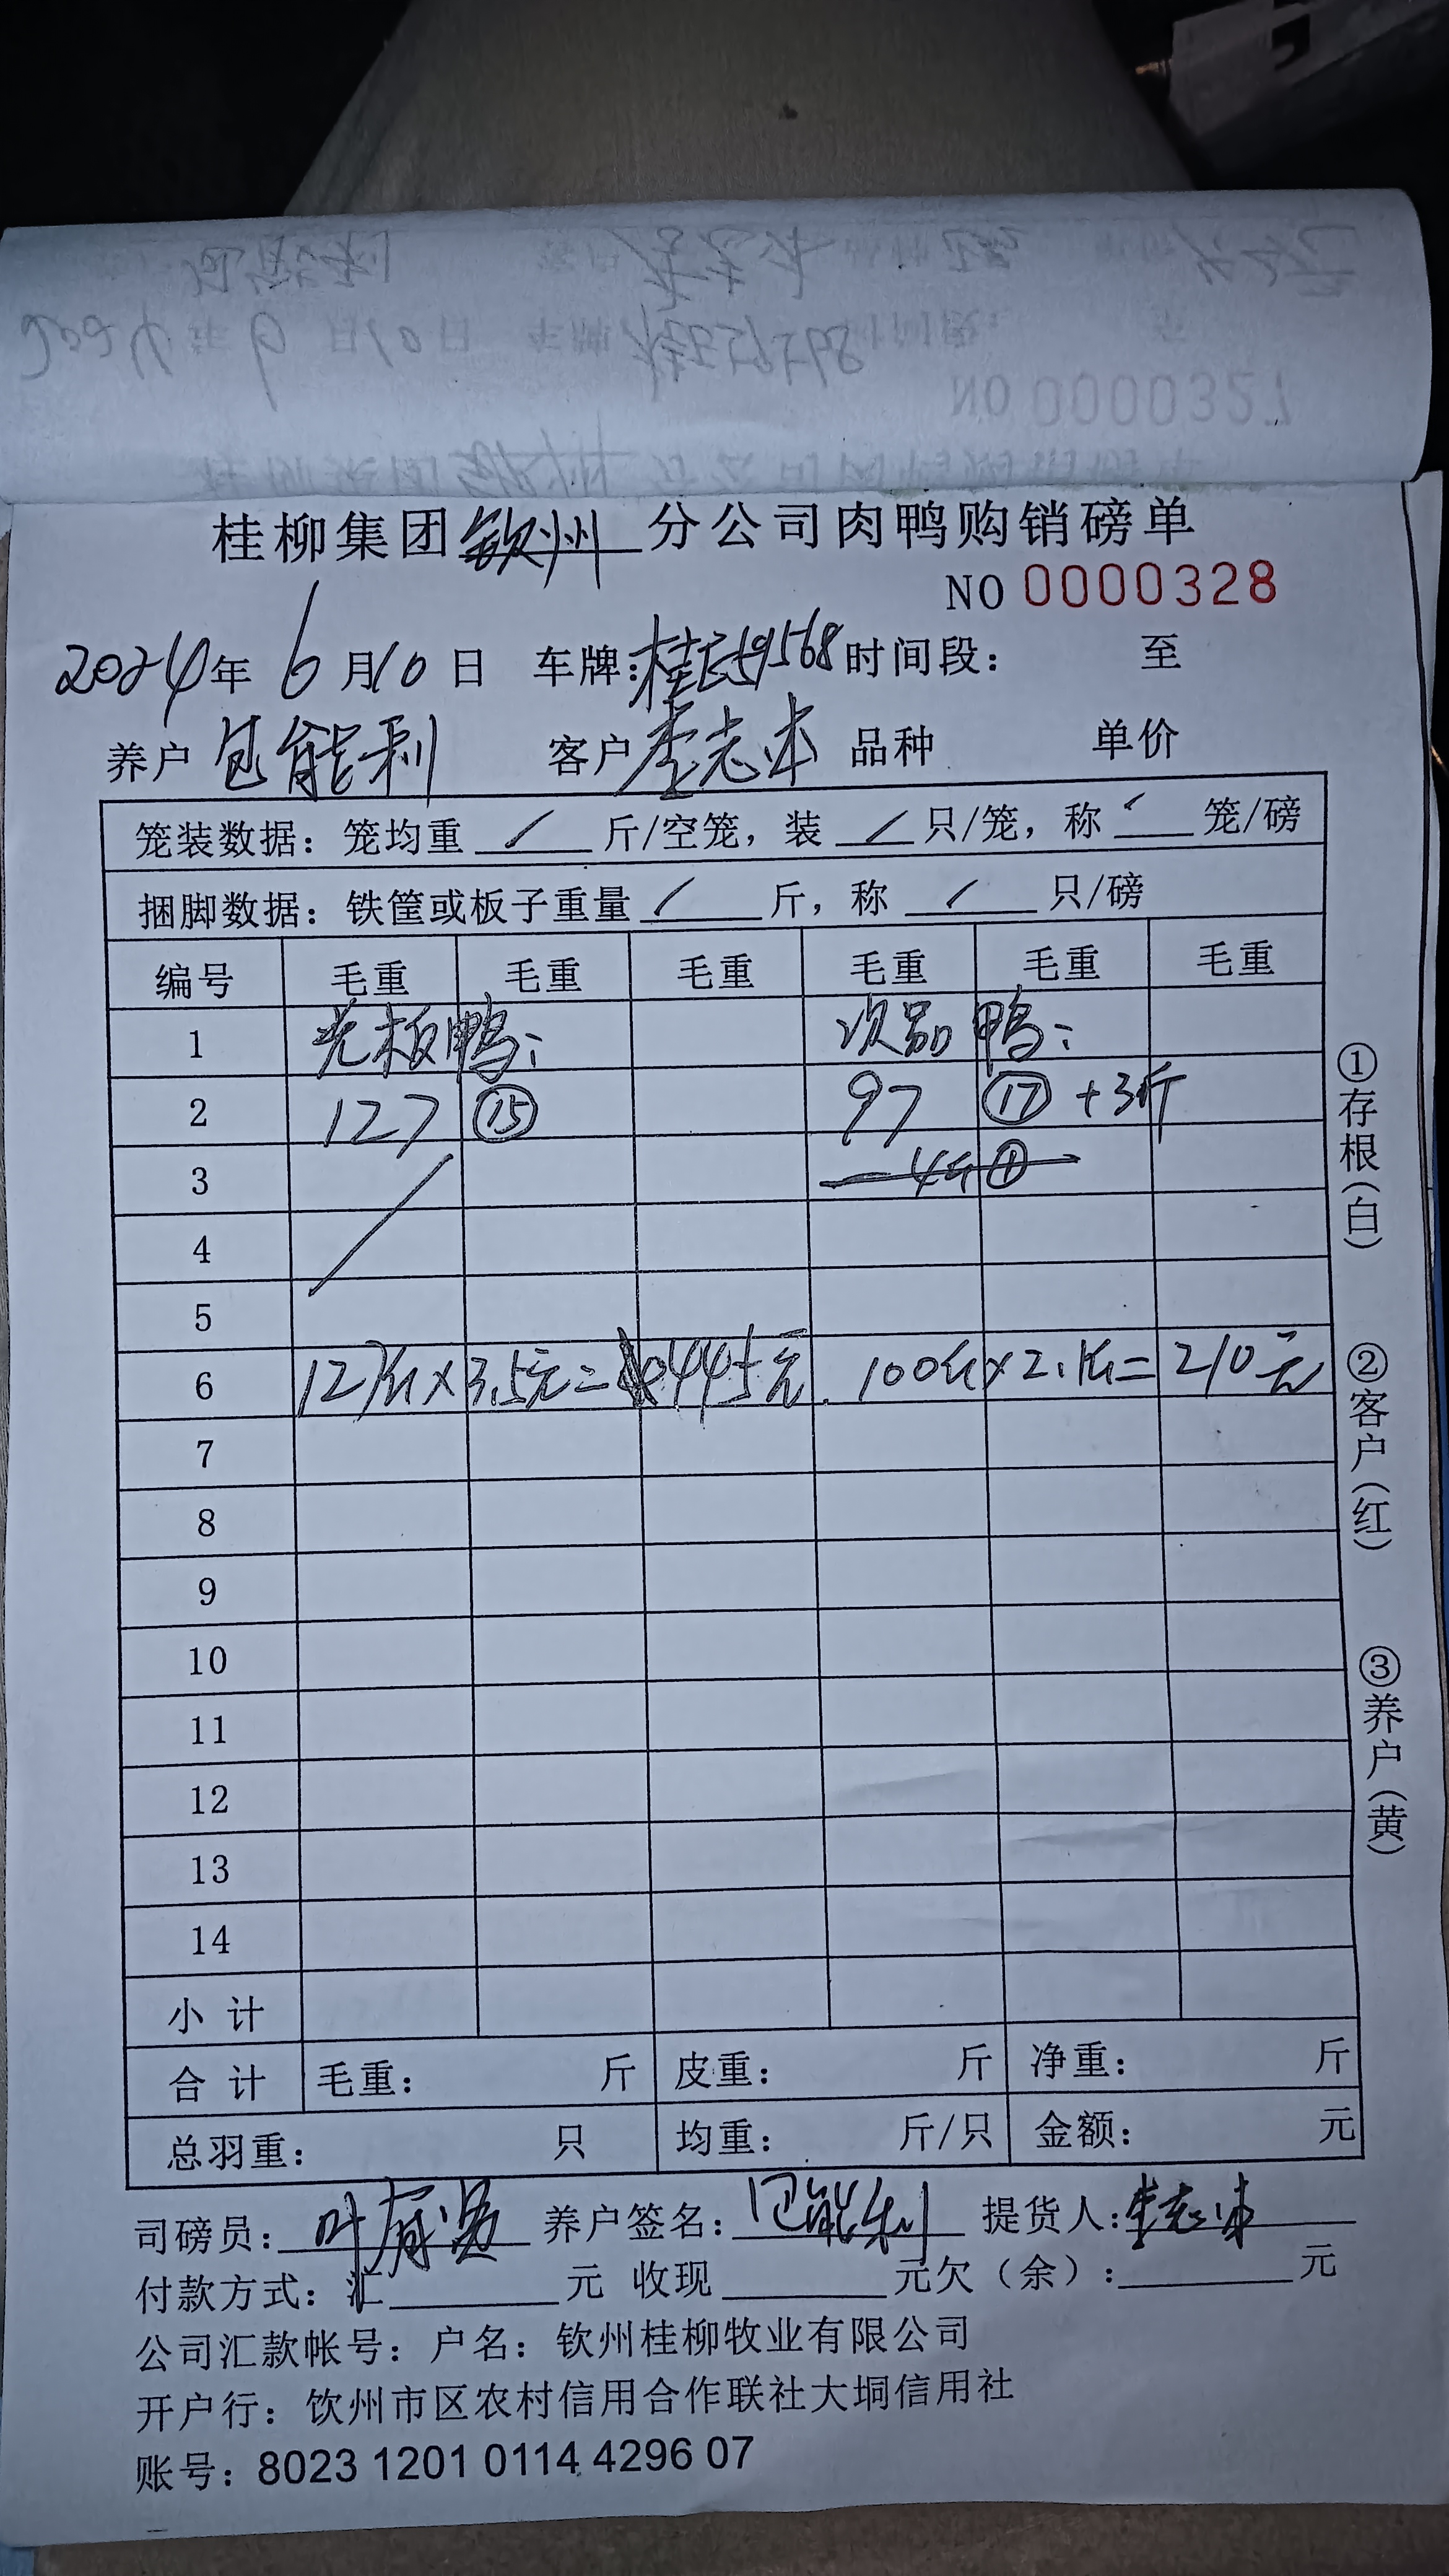 NO 0000327
桂柳集团钦州分公司肉鸭购销磅单
NO 0000328
2024年 6月10日 车牌:桂E59568 时间段: 至
养户 包能利 客户 李志本 品种 单价
笼装数据: 笼均重 / 斤/空笼, 装 / 只/笼, 称 / 笼/磅
捆脚数据: 铁筐或板子重量 / 斤, 称 / 只/磅
编号 毛重 毛重 毛重 毛重 毛重 毛重
1 光板鸭: 次品鸭:
2 127 ⑮ 97 ⑰ +3斤
3
4
5
6 127斤×3.5元=445元. 100斤×2.1元=210元
7
8
9
10
11
12
13
14
小计
合计 毛重: 斤 皮重: 斤 净重: 斤
总羽重: 只 均重: 斤/只 金额: 元
司磅员: 养户签名: 包能利 提货人: 李志本
付款方式: 汇 元 收现 元欠(余): 元
公司汇款帐号: 户名: 钦州桂柳牧业有限公司
开户行: 钦州市区农村信用合作联社大垌信用社
账号: 8023 1201 0114 4296 07
①存根(白)
②客户(红)
③养户(黄)